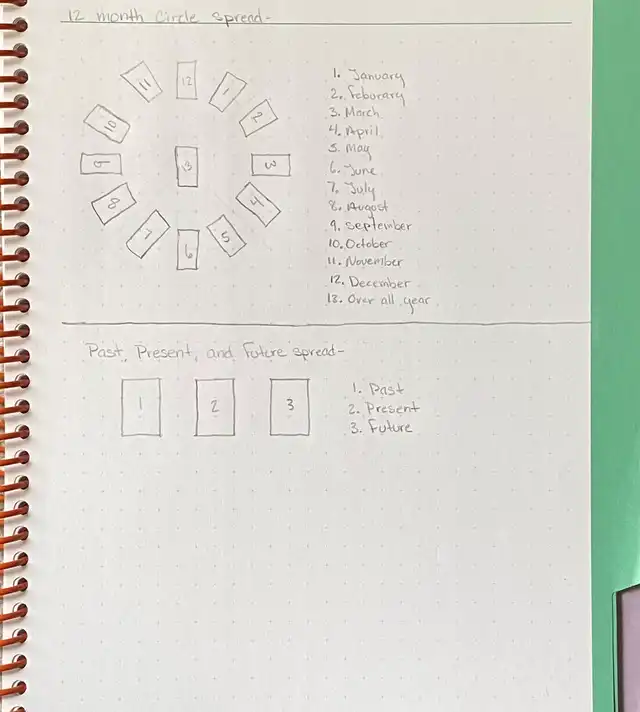 12 month Circle spread-
11 12 1
10 2
9 13 3
8 4
7 6 5
1. January
2. Feborary
3. March
4. April
5. May
6. June
7. July
8. August
9. September
10. October
11. November
12. December
13. Over all year
Past, Present, and Future spread-
1 2 3
1. Past
2. Present
3. Future